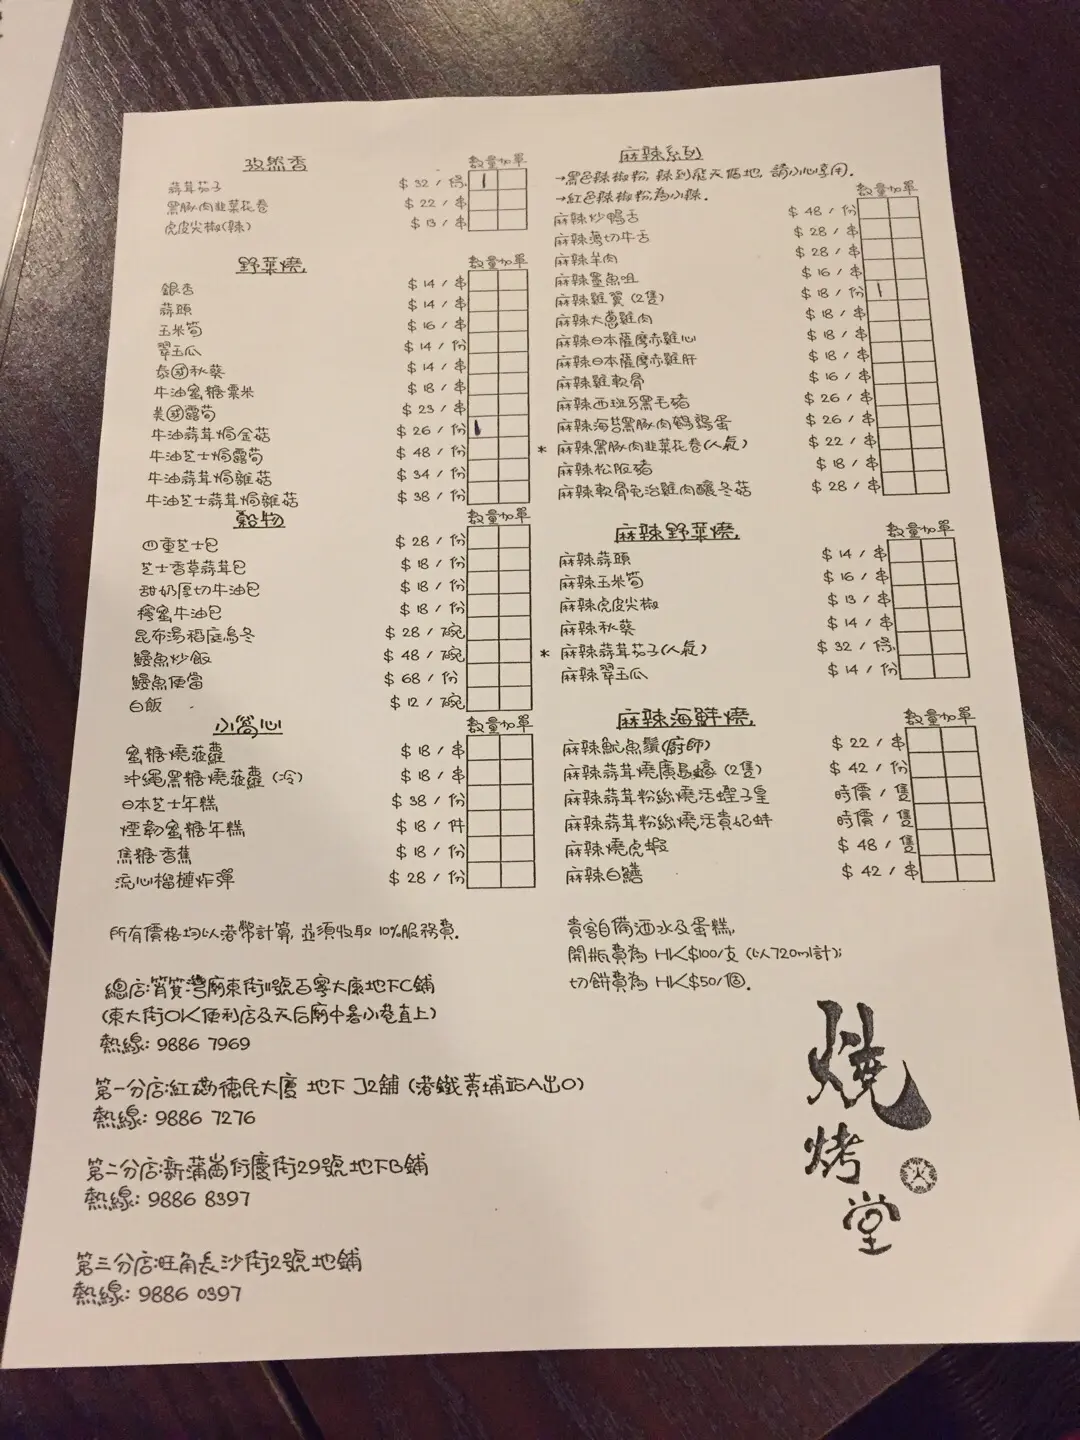 孜然香 數量 加單
蒜茸茄子 $32/條 1
黑豚肉韭菜花卷 $22/串
虎皮尖椒(辣) $13/串
野菜燒 數量 加單
銀杏 $14/串
蒜頭 $14/串
玉米筍 $16/串
翠玉瓜 $14/份
泰國秋葵 $14/串
牛油蜜糖粟米 $18/串
美國露筍 $23/串
牛油蒜茸焗金菇 $26/份 1
牛油芝士焗露筍 $48/份
牛油蒜茸焗雜菇 $34/份
牛油芝士蒜茸焗雜菇 $38/份
穀物 數量 加單
四重芝士包 $28/份
芝士香草蒜茸包 $18/份
甜奶厚切牛油包 $18/份
蜂蜜牛油包 $18/份
昆布湯稻庭烏冬 $28/碗
鰻魚炒飯 $48/碗
鰻魚便當 $68/份
白飯 $12/碗
小窩心 數量 加單
蜜糖燒菠蘿 $18/串
沖繩黑糖燒菠蘿(冷) $18/串
日本芝士年糕 $38/份
煙韌蜜糖年糕 $18/件
焦糖香蕉 $18/份
流心榴槤炸彈 $28/份
所有價格均以港幣計算, 並須收取10%服務費.
總店:筲箕灣廟東街11號百寧大廈地下C舖
(東大街OK便利店及天后廟中巷小巷直上)
熱線: 9886 7969
第一分店:紅磡德民大廈 地下 J2舖 (港鐵黃埔站A出口)
熱線: 9886 7276
第二分店:新蒲崗衍慶街29號地下B舖
熱線: 9886 8397
第三分店:旺角長沙街2號地舖
熱線: 9886 0397
麻辣系列
→黑色辣椒粉, 辣到飛天佰地, 請小心享用.
→紅色辣椒粉,為小辣.
數量 加單
麻辣炒鴨舌 $48/份
麻辣薄切牛舌 $28/串
麻辣羊肉 $28/串
麻辣墨魚咀 $16/串
麻辣雞翼(2隻) $18/份 1
麻辣大蔥雞肉 $18/串
麻辣日本薩摩赤雞心 $18/串
麻辣日本薩摩赤雞肝 $18/串
麻辣雞軟骨 $16/串
麻辣西班牙黑毛豬 $26/串
麻辣海苔黑豚肉鵪鶉蛋 $26/串
* 麻辣黑豚肉韭菜花卷(人氣) $22/串
麻辣松阪豬 $18/串
麻辣軟骨免治雞肉釀冬菇 $28/串
麻辣野菜燒 數量 加單
麻辣蒜頭 $14/串
麻辣玉米筍 $16/串
麻辣虎皮尖椒 $13/串
麻辣秋葵 $14/串
* 麻辣蒜茸茄子(人氣) $32/條
麻辣翠玉瓜 $14/份
麻辣海鮮燒 數量 加單
麻辣魷魚鬚(廚師) $22/串
麻辣蒜茸燒廣島蠔(2隻) $42/份
麻辣蒜茸粉絲燒活蟶子皇 時價/隻
麻辣蒜茸粉絲燒活貴妃蚌 時價/隻
麻辣燒虎蝦 $48/隻
麻辣白鱔 $42/串
貴客自備酒水及蛋糕,
開瓶費為 HK$100/支 (以720ml計);
切餅費為 HK$50/個.
燒
烤
火
堂